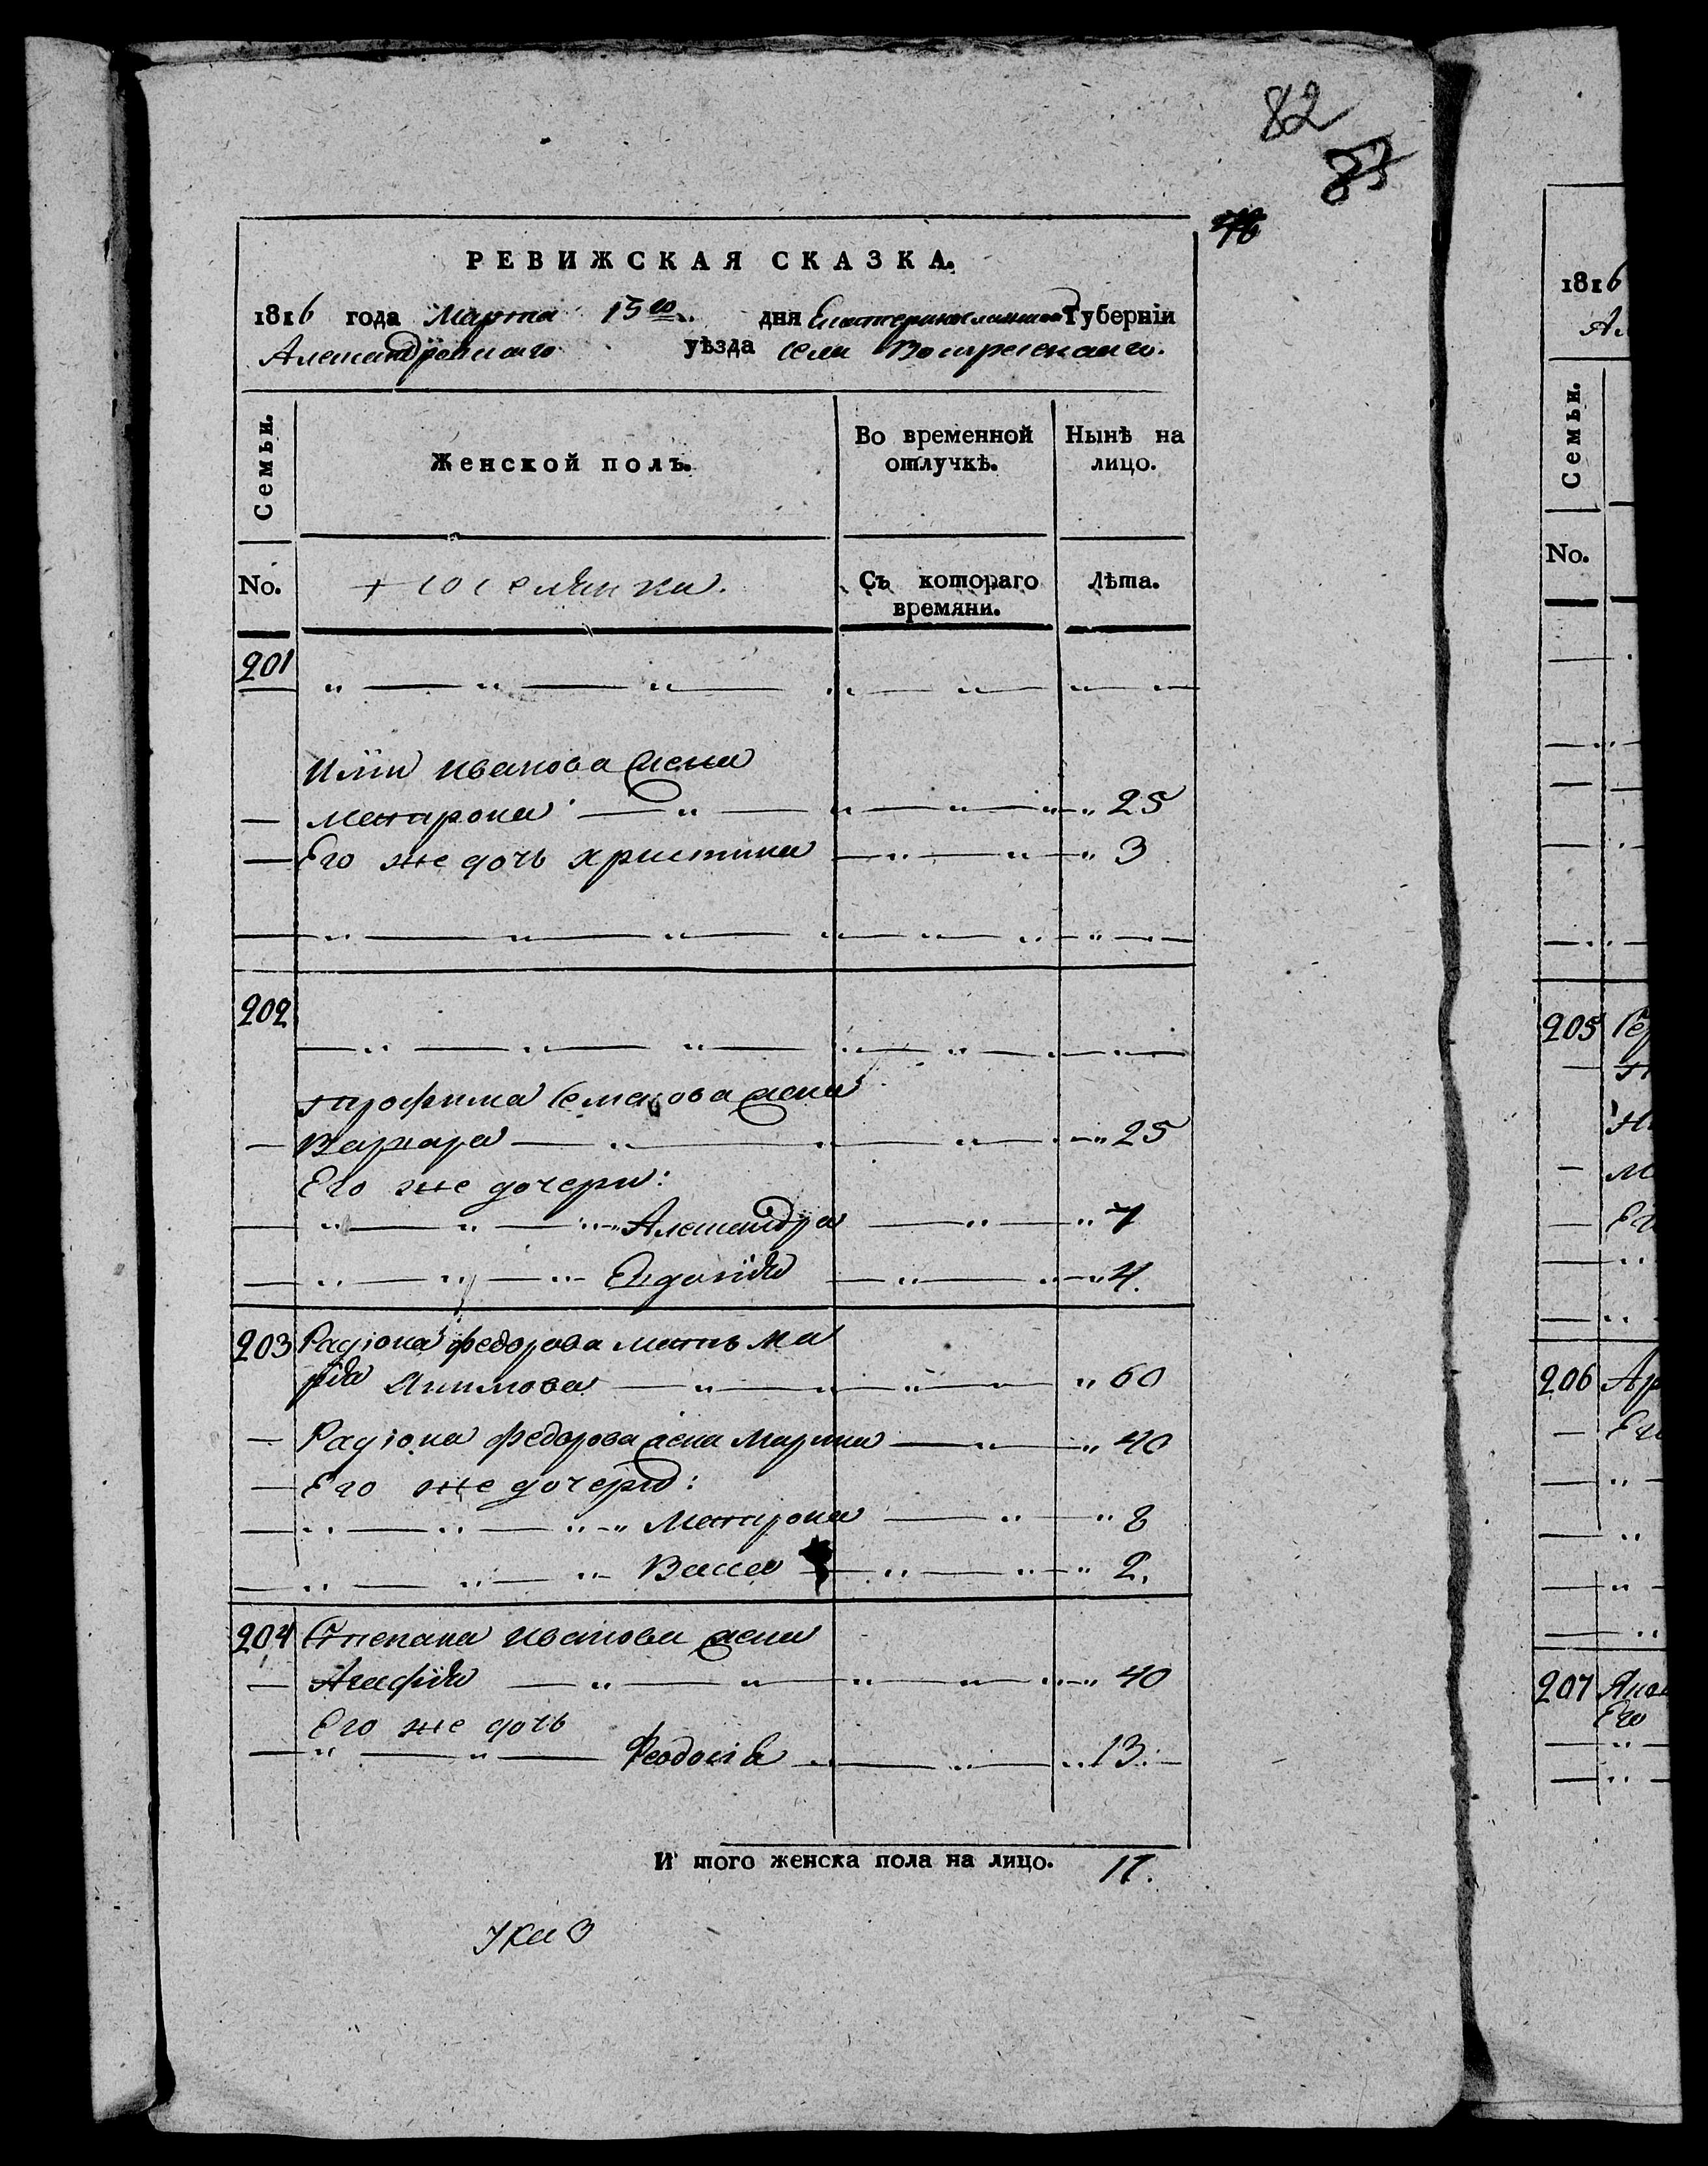 82
83
76
РЕВИЖСКАЯ СКАЗКА.
1816 года Марта 15го дня Екатеринославской Губерніи
Александровскаго уѣзда села Воскресенскаго.
Семьи. Женской полъ. Во временной отлучкѣ. Нынѣ на лицо.
No. Съ котораго времяни. Лѣта.
201
Ильи Иванова жена
Матрона 25
Его же дочь христина 3
202
трофима Семенова жена
Варвара 25
Его же дочери:
Александра 7
Евдокія 4.
203 Радіона федорова мать Ма
рія Акимова 60
Радіона федорова жена Марина 40
Его же дочери:
Матрона 8
Васса 2.
204 Степана Иванова жена
Агафія 40
Его же дочь
Феодосія 13.
И того женска пола на лицо. 11.
1816
No.
205
206
Его
207
Его